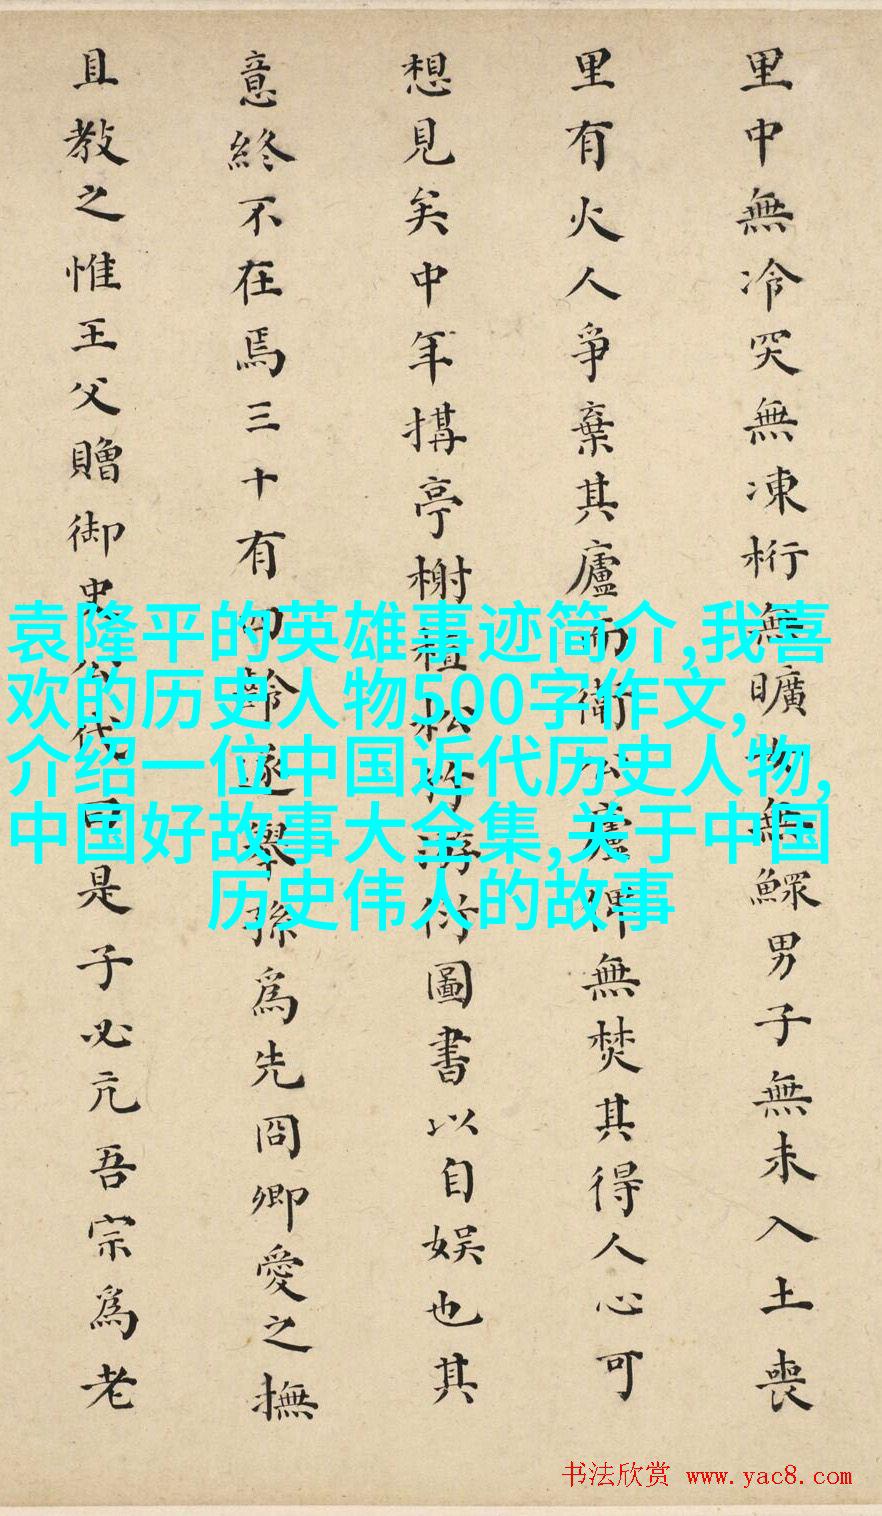 里中無冷突無凍桁無曠無鰥男子無未入土喪
里有火人爭棄其廬而衛公廬俾無焚其得人心可
想見矣中年搆亭榭種松竹游衍圖書以自娛也其
意終不在焉三十有四齡遂舉孫爲先冏卿愛之撫
且教之惟王父贈御史公曰是子必亢吾宗爲老
袁隆平的英雄事迹简介,我喜
欢的历史人物500字作文,
介绍一位中国近代历史人物,
中国好故事大全集,关于中国
历史伟人的故事
书法欣赏 www.yac8.com